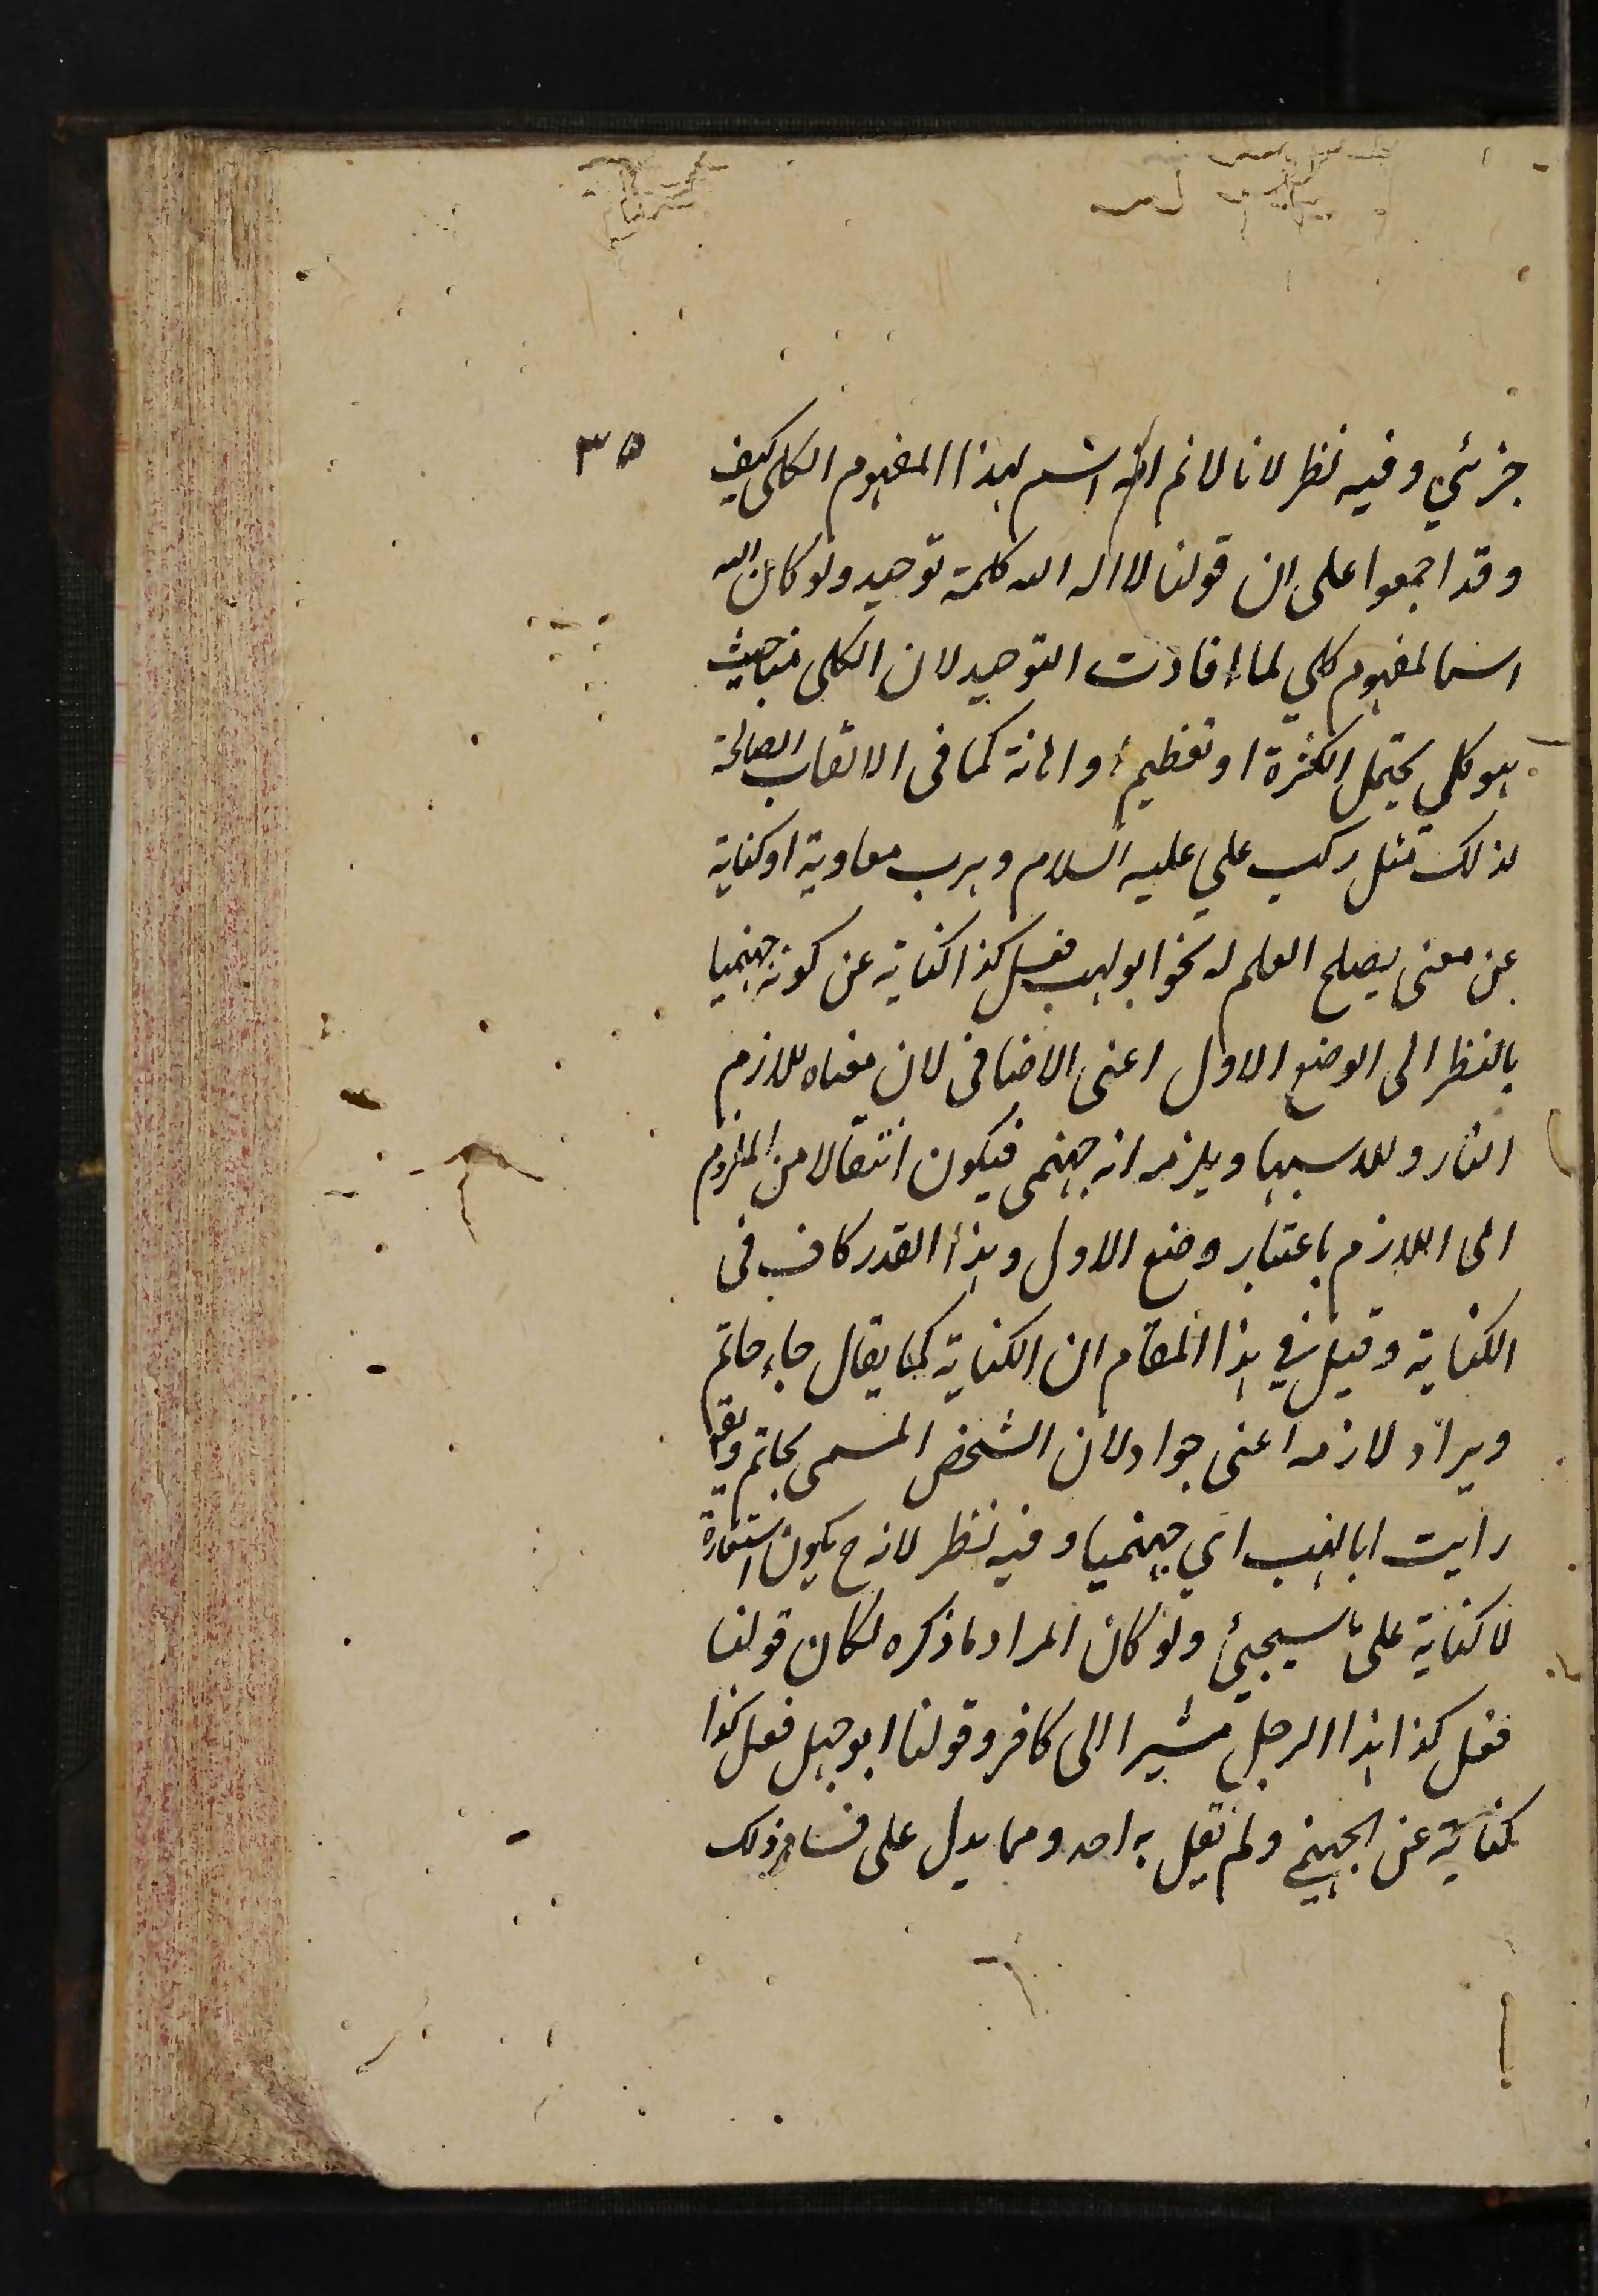 ٣٥
جزئي وفيه نظر لانا لانم انه اسم لهذا المفهوم الكلى كيف
وقد اجمعوا على ان قولنا لا اله الا الله كلمة توحيد ولو كان الله
اسما لمفهوم كلي لما افادت التوحيد لان الكلى من حيث
هو كلي يحتمل الكثرة او تعظيم او اهانة كما فى الالقاب الصالحة
لذلك مثل ركب علي عليه السلام وهرب معاوية او كناية
عن معنى يصلح العلم له نحو ابو لهب فعل كذا كناية عن كونه جهنميا
بالنظر الى الوضع الاول اعنى الاضافى لان معناه ملازم
النار وملابسها ويلزمه انه جهنمى فيكون انتقالا من الملزوم
الى اللازم باعتبار وضع الاول وهذا القدر كاف فى
الكناية وقيل في هذا المقام ان الكناية كما يقال جاء حاتم
ويراد لازمه اعنى جواد لان الشخص المسمى بحاتم ويقال
رايت ابا لهب اي جهنميا وفيه نظر لانه ح يكون استعارة
لا كناية على ما سيجيئ ولو كان المراد ما ذكره لكان قولنا
فعل كذا هذا الرجل مشيرا الى كافر وقولنا ابو جهل فعل كذا
كناية عن الجهنمي ولم يقل به احد ومما يدل على فساد ذلك